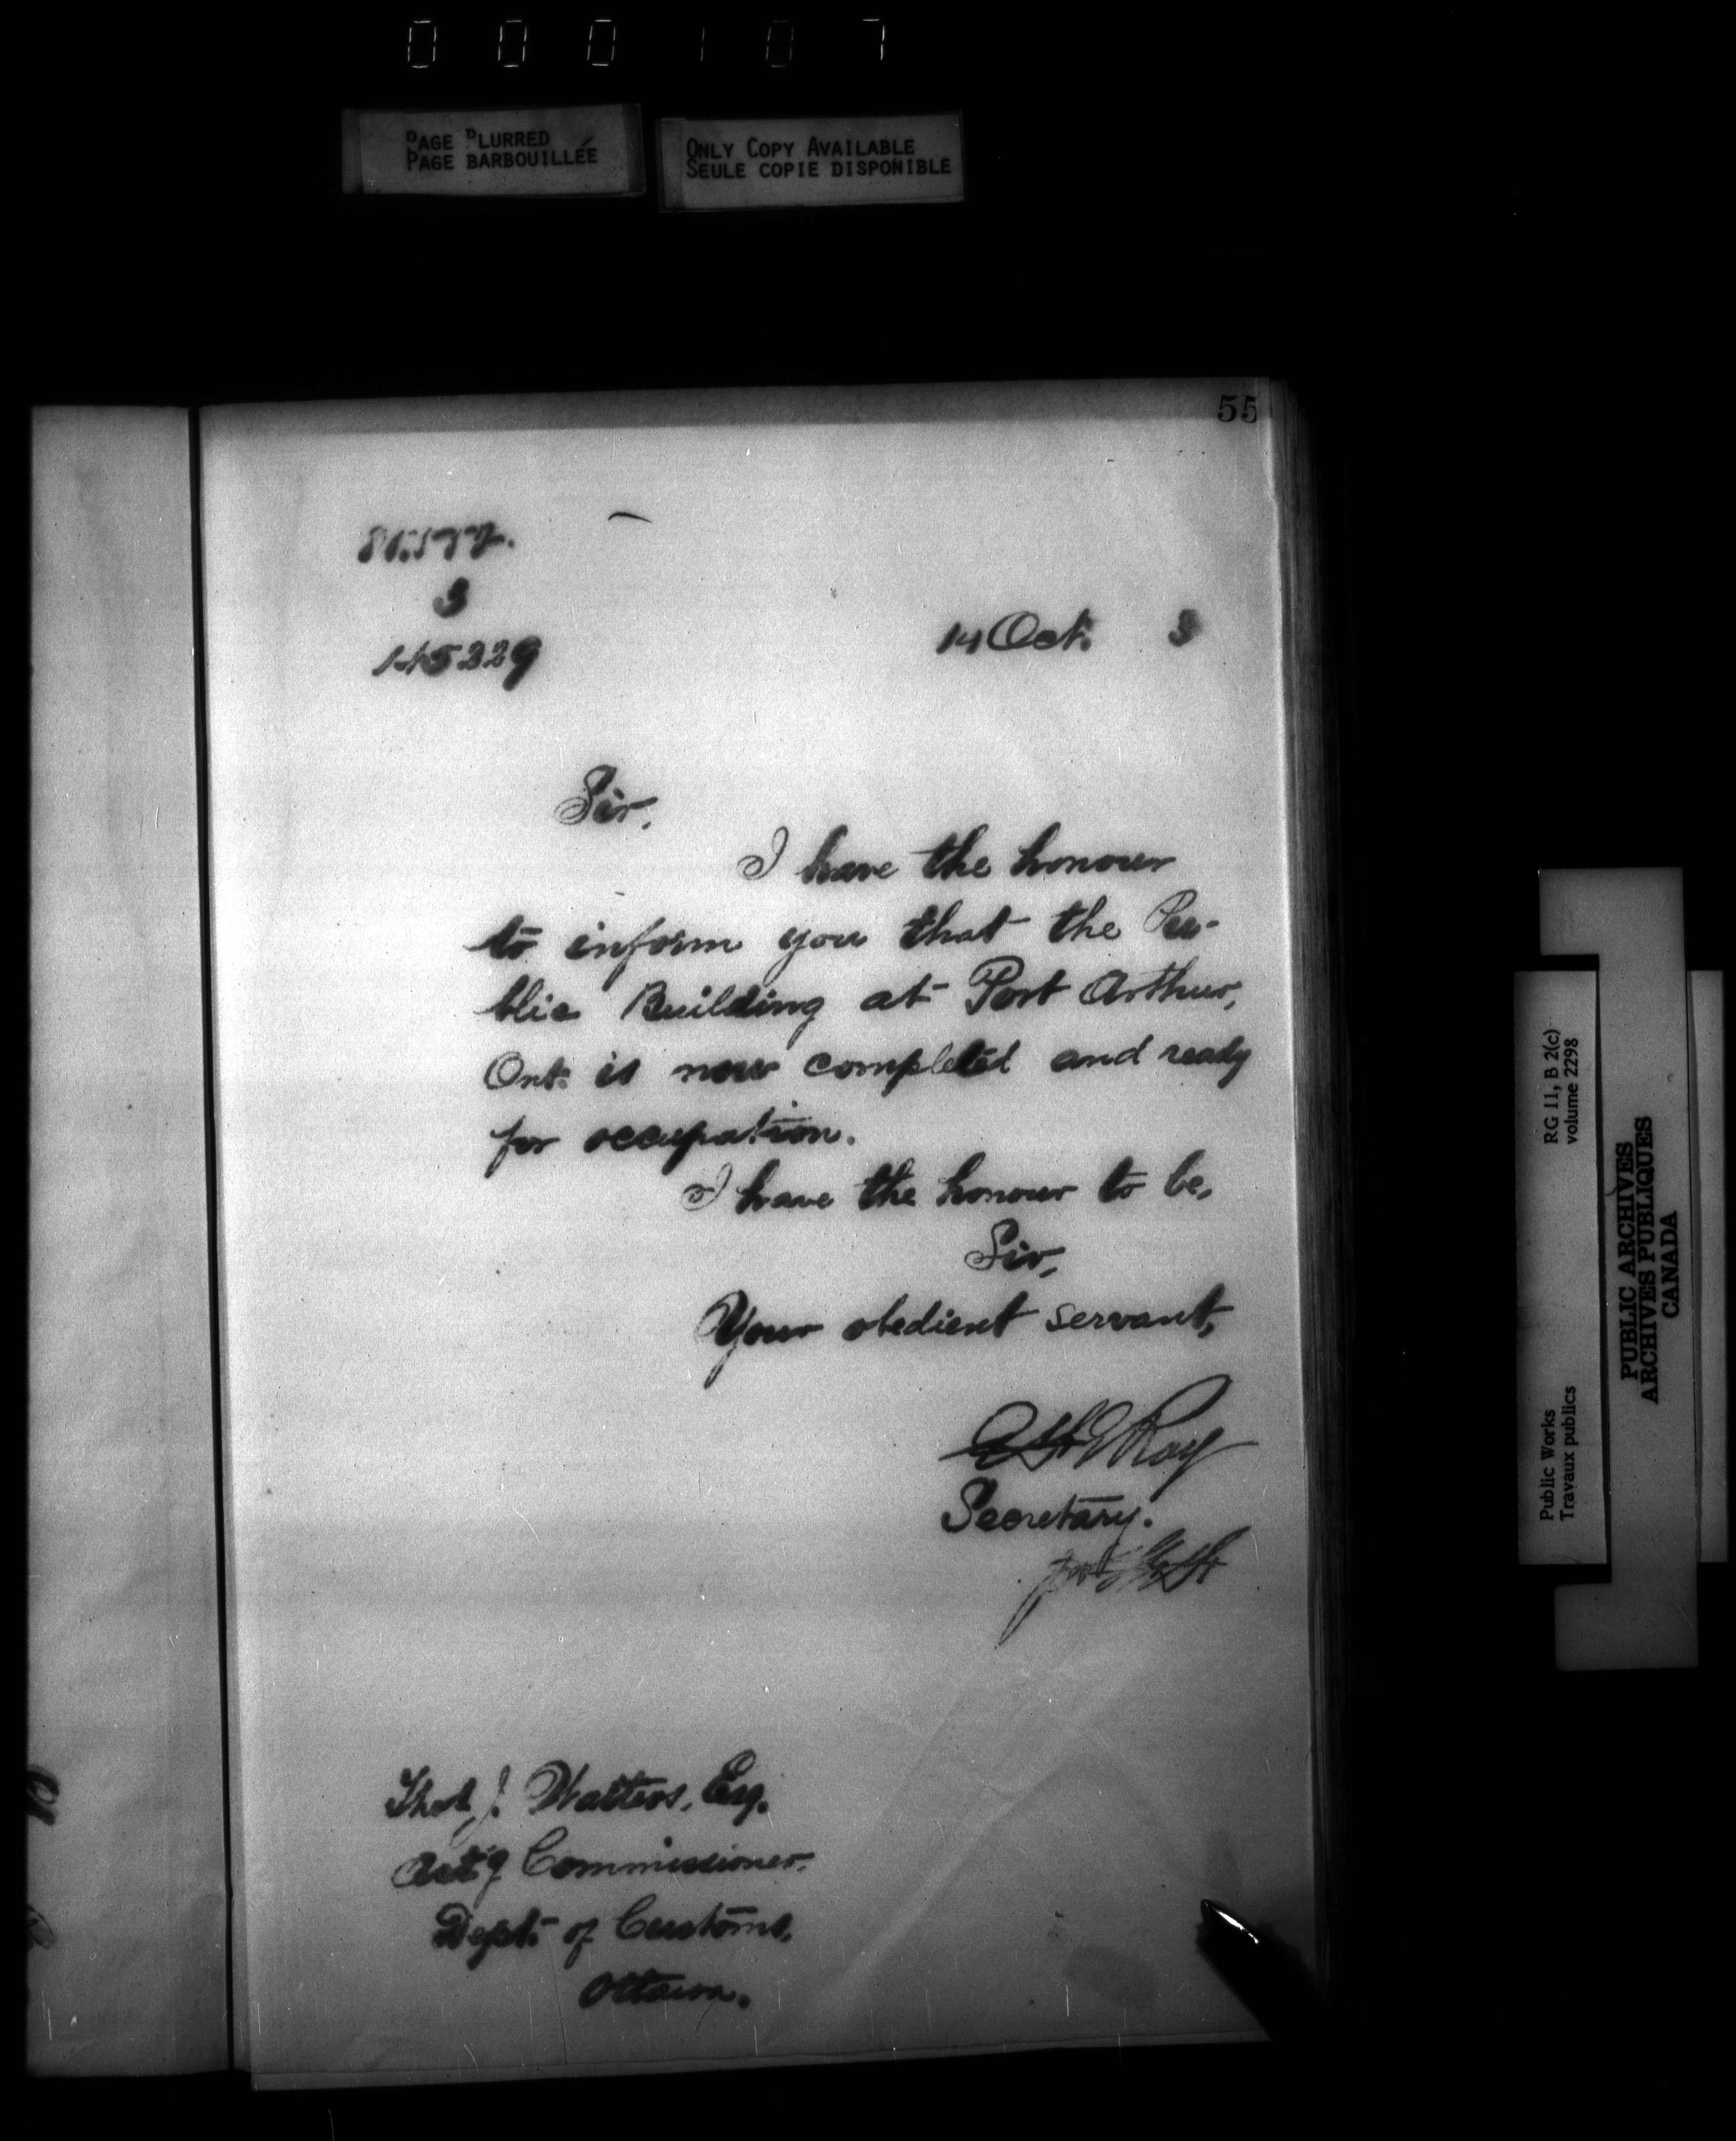 000107
PAGE BLURRED
PAGE BARBOUILLÉE
ONLY COPY AVAILABLE
SEULE COPIE DISPONIBLE
55
3
145229
14 Oct. 3
Sir,
I have the honour
to inform you that the Pu-
blic Building at Port Arthur,
Ont. is now completed and ready
for occupation.
I have the honour to be,
Sir,
Your obedient servant,
Roy
Secretary.
Thos J. Watters, Esq.
Act'g Commissioner.
Dept. of Customs,
Ottawa.
Public Works
Travaux publics
RG 11, B 2(c)
volume 2298
PUBLIC ARCHIVES
ARCHIVES PUBLIQUES
CANADA